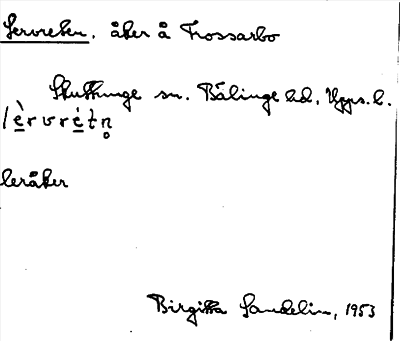 Lervreten, åker å Frossarbo
Skuttunge sn. Bälinge hd, Upps. l.
lèrvrétn̥
leråker
Birgitta Sandelin, 1953